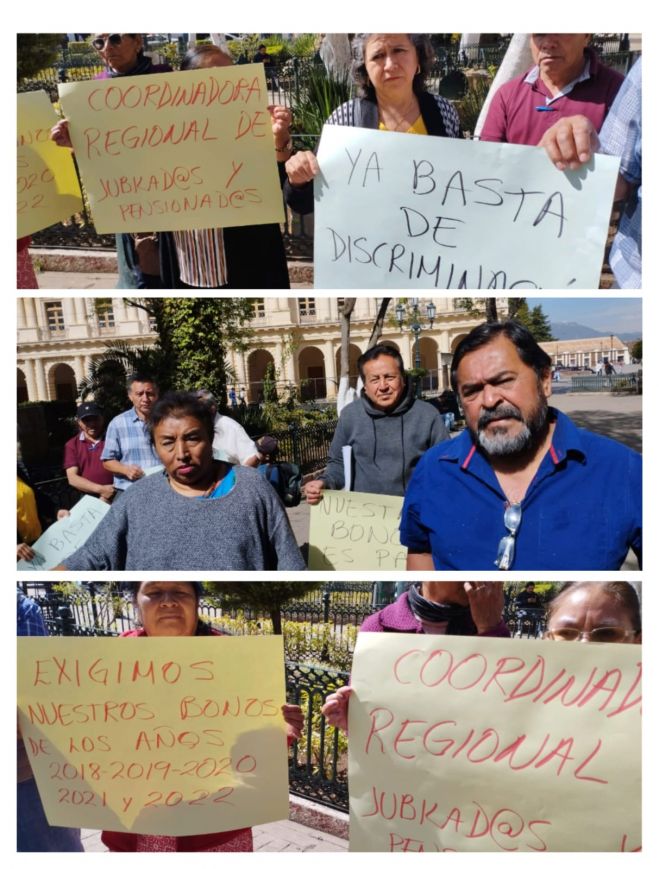 COORDINADORA
REGIONAL DE
JUBKAD@S Y
PENSIONAD@S
2020
22
YA BASTA
DE
DISCRIMINACI
BASTA
NUESTR
BONO
ES PA
EXIGIMOS
NUESTROS BONOS
DE LOS AÑOS
2018-2019-2020
2021 y 2022
COORDINAD
REGIONAL
JUBKAD@S Y
PENSIONAD@S